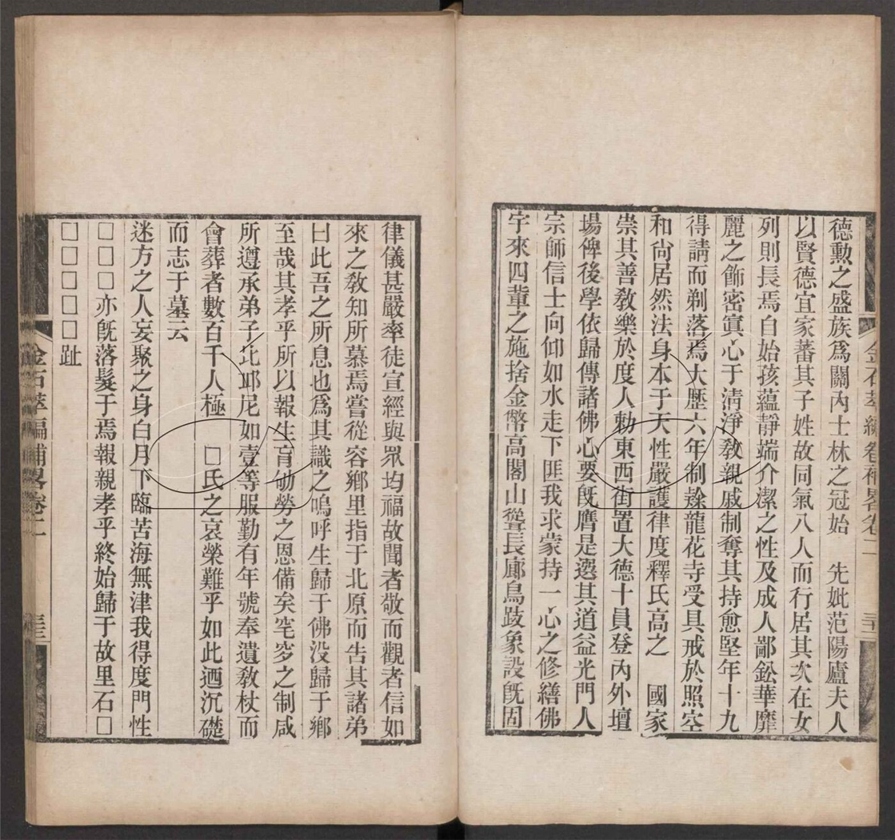 德勳之盛族爲關內士林之冠始　先妣范陽盧夫人
以賢德宜家蕃其子姓故同氣八人而行居其次在女
列則長焉自始孩蘊靜端介潔之性及成人鄙鉛華靡
麗之飾密寘心于清淨敎親戚制奪其持愈堅年十九
得請而剃落焉大歷六年制隸龍花寺受具戒於照空
和尙居然法身本于天性嚴護律度釋氏高之　國家
崇其善敎樂於度人勅東西街置大德十員登內外壇
場俾後學依歸傳諸佛心要旣膺是選其道益光門人
宗師信士向仰如水走下匪我求蒙持一心之修繕佛
宇來四輩之施捨金幣高閣山聳長廊鳥跂象設旣固
律儀甚嚴率徒宣經與眾均福故聞者敬而觀者信如
來之敎知所慕焉嘗從容鄉里指于北原而告其諸弟
曰此吾之所息也爲其識之嗚呼生歸于佛没歸于鄉
至哉其孝乎所以報生育劬勞之恩備矣窀穸之制咸
所遵承弟子比邱尼如壹等服勤有年號奉遺敎杖而
會葬者數百千人極　□氏之哀榮難乎如此迺沉礎
而志于墓云
迷方之人妄聚之身白月下臨苦海無津我得度門性
□□□亦旣落髮于焉報親孝乎終始歸于故里石□
□□□□□趾
金石萃編補畧卷二